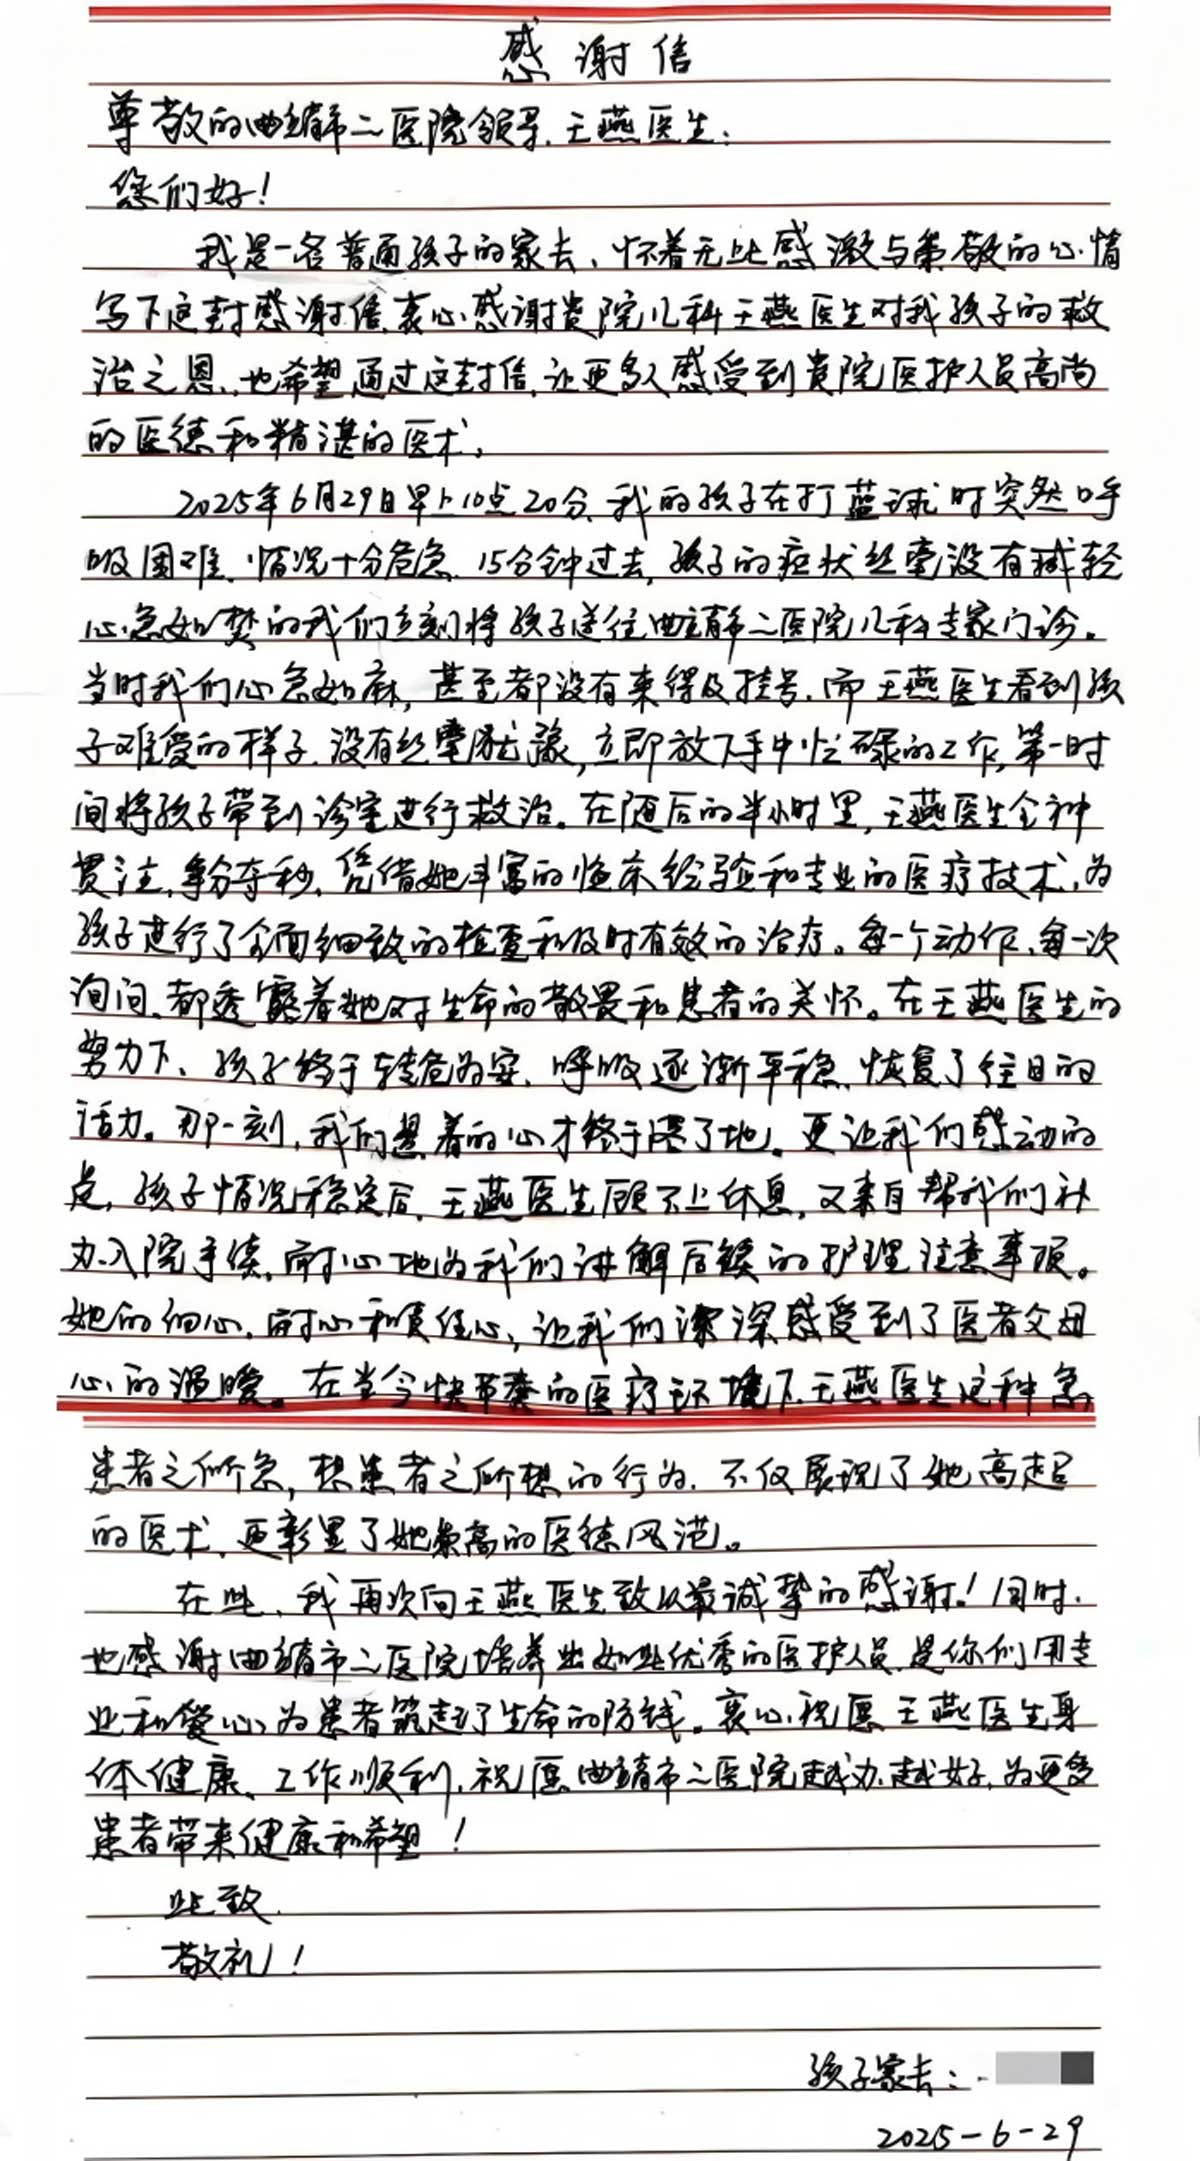 感谢信
尊敬的曲靖市二医院领导、王燕医生：
您们好！
我是一名普通孩子的家长、怀着无比感激与崇敬的心情
写下这封感谢信，衷心感谢贵院儿科王燕医生对我孩子的救
治之恩、也希望通过这封信，让更多人感受到贵院医护人员高尚
的医德和精湛的医术。
2025年6月29日早上10点20分、我的孩子在打蓝球时突然呼
吸困难、情况十分危急、15分钟过去，孩子的症状丝毫没有减轻
心急如焚的我们立刻将孩子送往曲靖市二医院儿科专家门诊。
当时我们心急如麻，甚至都没有来得及挂号、而王燕医生看到孩
子难受的样子、没有丝毫犹豫，立即放下手中忙碌的工作，第一时
间将孩子带到诊室进行救治。在随后的半小时里，王燕医生全神
贯注，争分夺秒、凭借她丰富的临床经验和专业的医疗技术，为
孩子进行了全面细致的检查和及时有效的治疗。每一个动作、每一次
询问、都透露着她对生命的敬畏和患者的关怀。在王燕医生的
努力下、孩子终于转危为安、呼吸逐渐平稳、恢复了往日的
活力。那一刻，我们悬着的心才终于落了地。更让我们感动的
是，孩子情况稳定后，王燕医生顾不上休息，又亲自帮我们补
办入院手续、耐心地为我们讲解后续的护理注意事项。
她的细心、耐心和责任心，让我们深深感受到了医者父母
心的温暖。在当今快节奏的医疗环境下、王燕医生这种急
患者之所急，想患者之所想的行为、不仅展现了她高超
的医术、更彰显了她崇高的医德风范。
在此、我再次向王燕医生致以最诚挚的感谢！同时、
也感谢曲靖市二医院培养出如此优秀的医护人员、是你们用专
业和爱心为患者筑起了生命的防线。衷心祝愿王燕医生身
体健康、工作顺利，祝愿曲靖市二医院越办越好，为更多
患者带来健康和希望！
此致
敬礼！
孩子家长：
2025-6-29